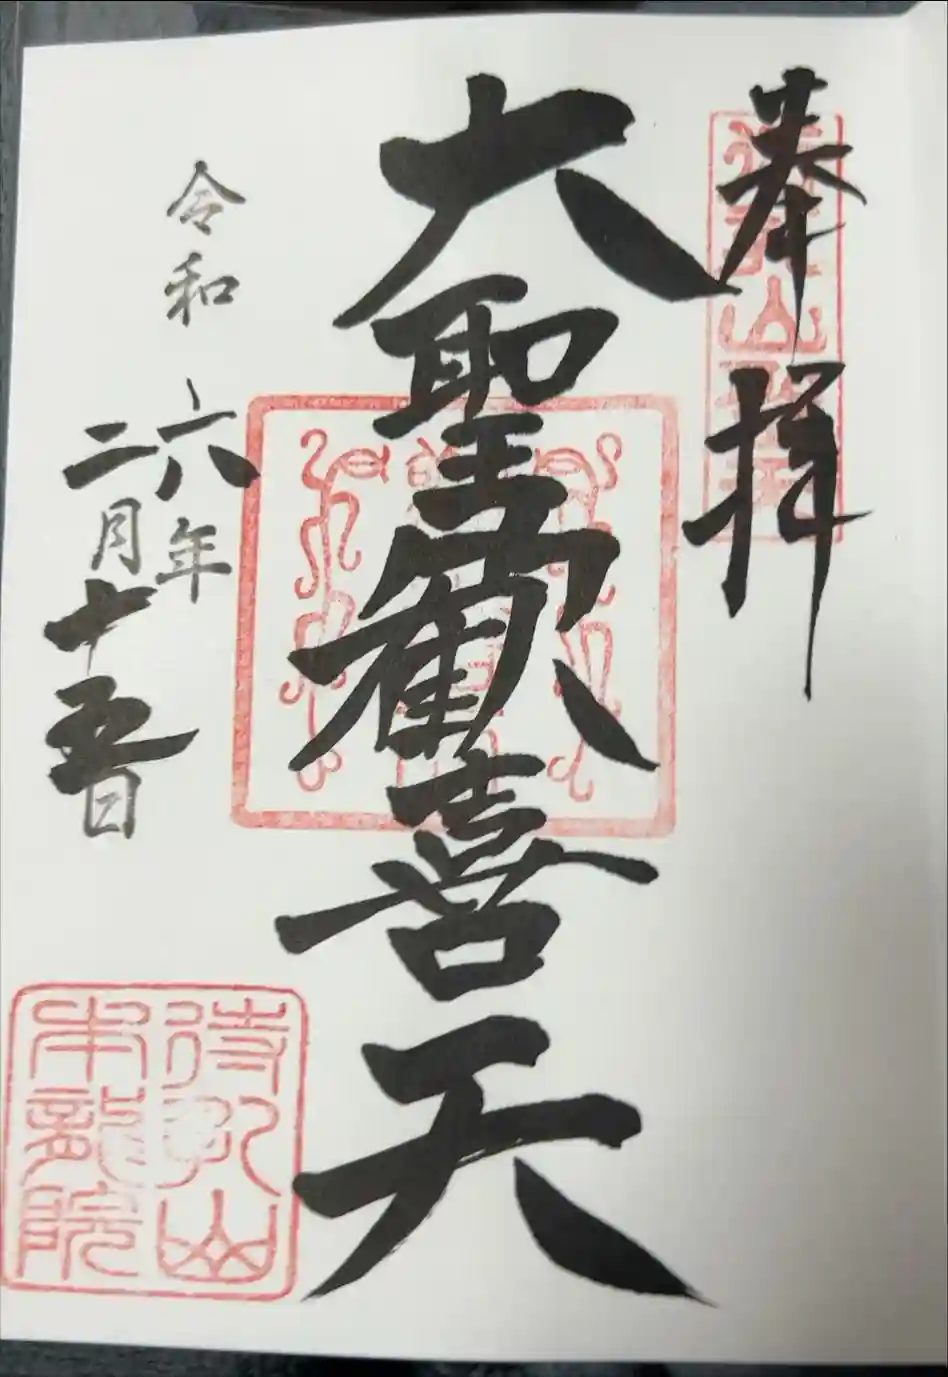 奉拝
大聖歓喜天
令和六年
二月十五日
待乳山
本龍院